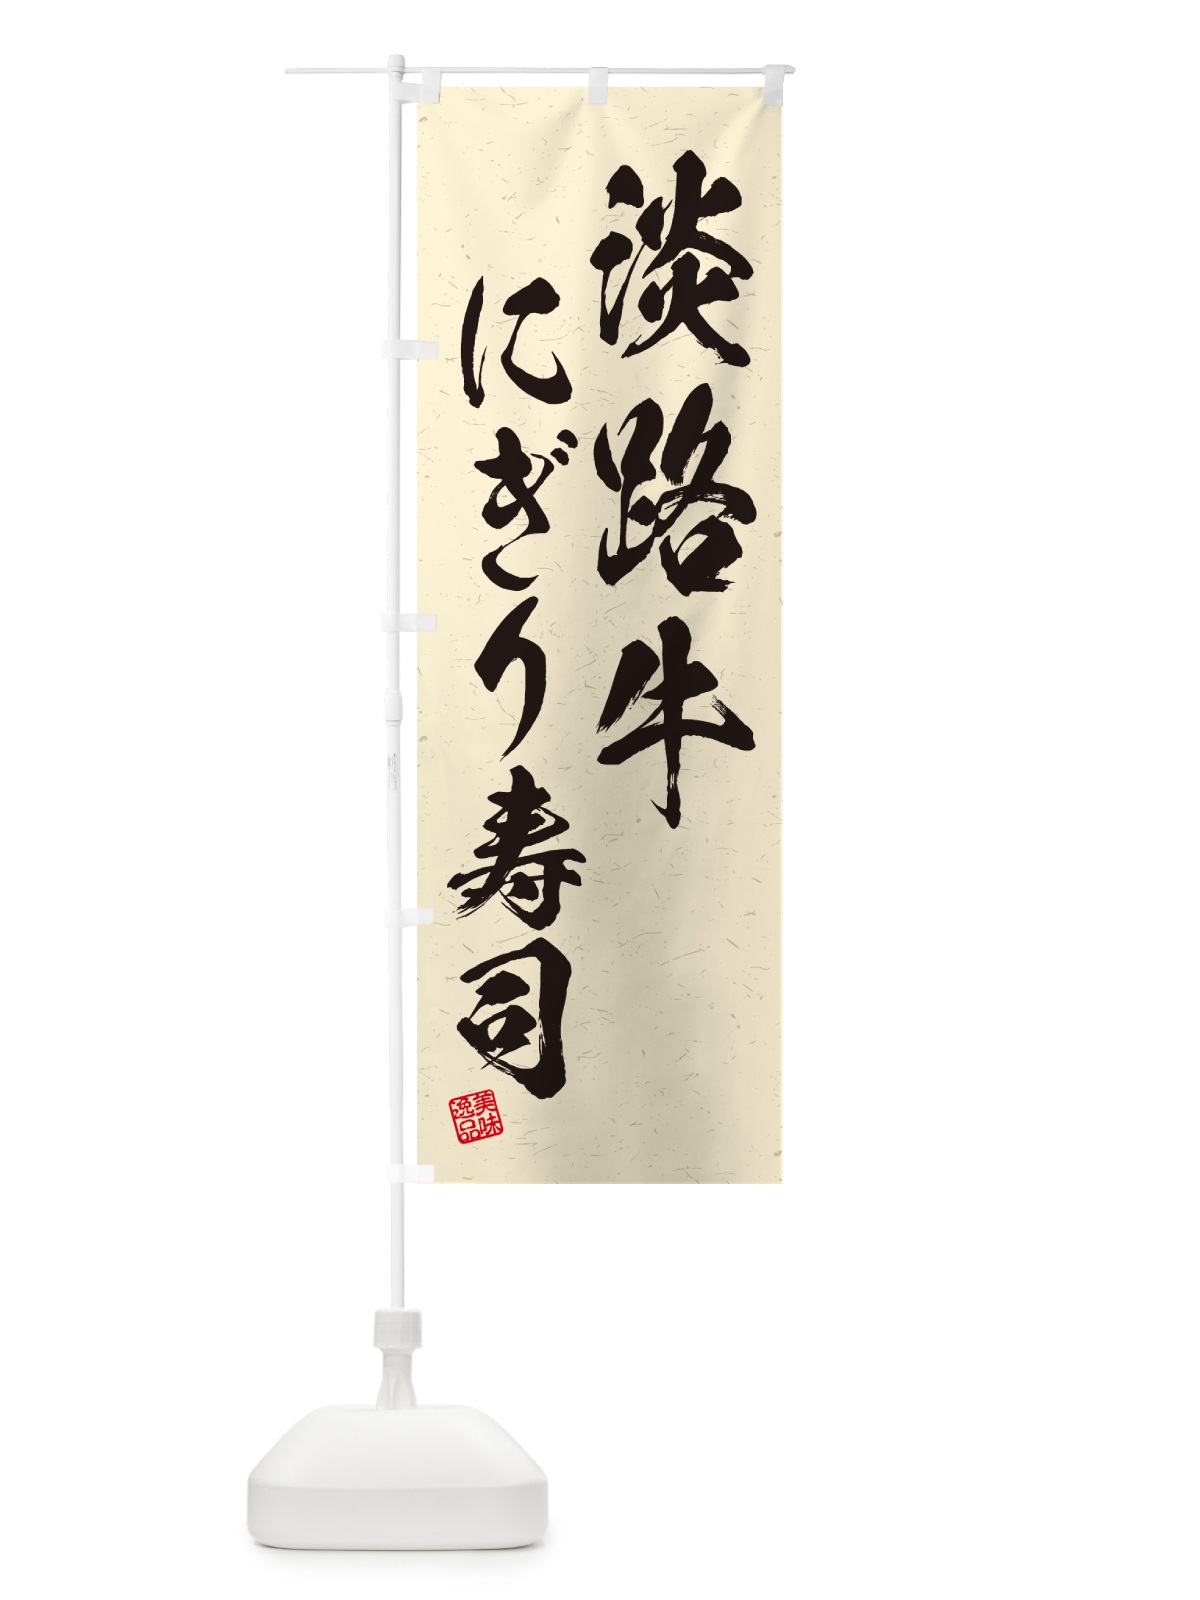 淡路牛
にぎり寿司
美味
逸品